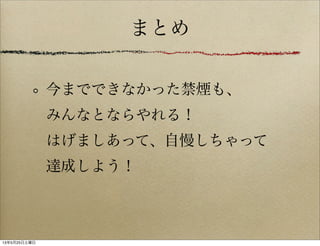 まとめ
今までできなかった禁煙も、
みんなとならやれる！
はげましあって、自慢しちゃって
達成しよう！
13年5月25日土曜日